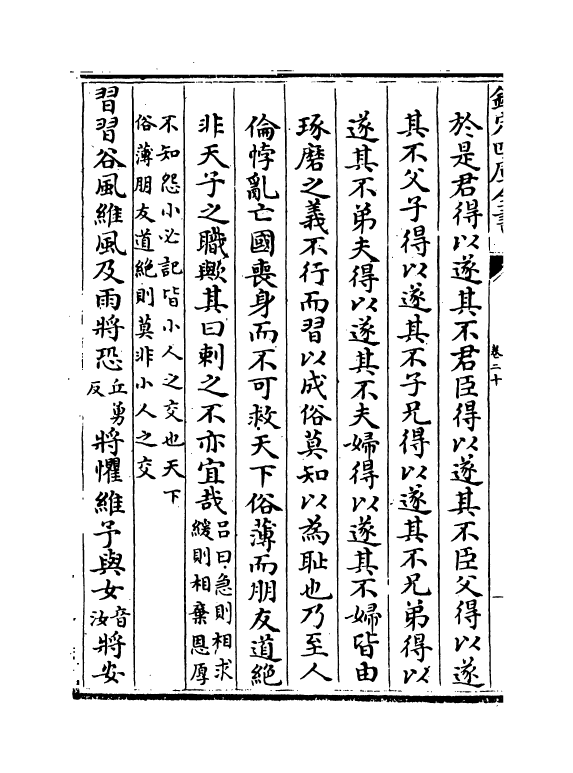 欽定四庫全書
卷二十
於是君得以遂其不君臣得以遂其不臣父得以遂
其不父子得以遂其不子兄得以遂其不兄弟得以
遂其不弟夫得以遂其不夫婦得以遂其不婦皆由
琢磨之義不行而習以成俗莫知以為恥也乃至人
倫悖亂亡國喪身而不可救天下俗薄而朋友道絶
非天子之職歟其曰刺之不亦宜哉吕曰急則相求緩則相棄恩厚
不知怨小必記皆小人之交也天下
俗薄朋友道絶則莫非小人之交
習習谷風維風及雨將恐丘勇反將懼維子與女音汝將安